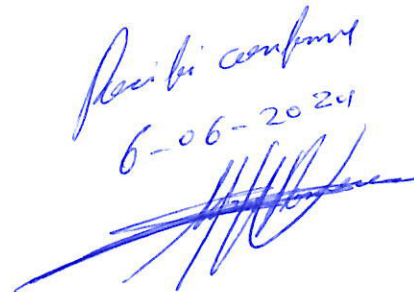 Recibi conforme
6-06-2024